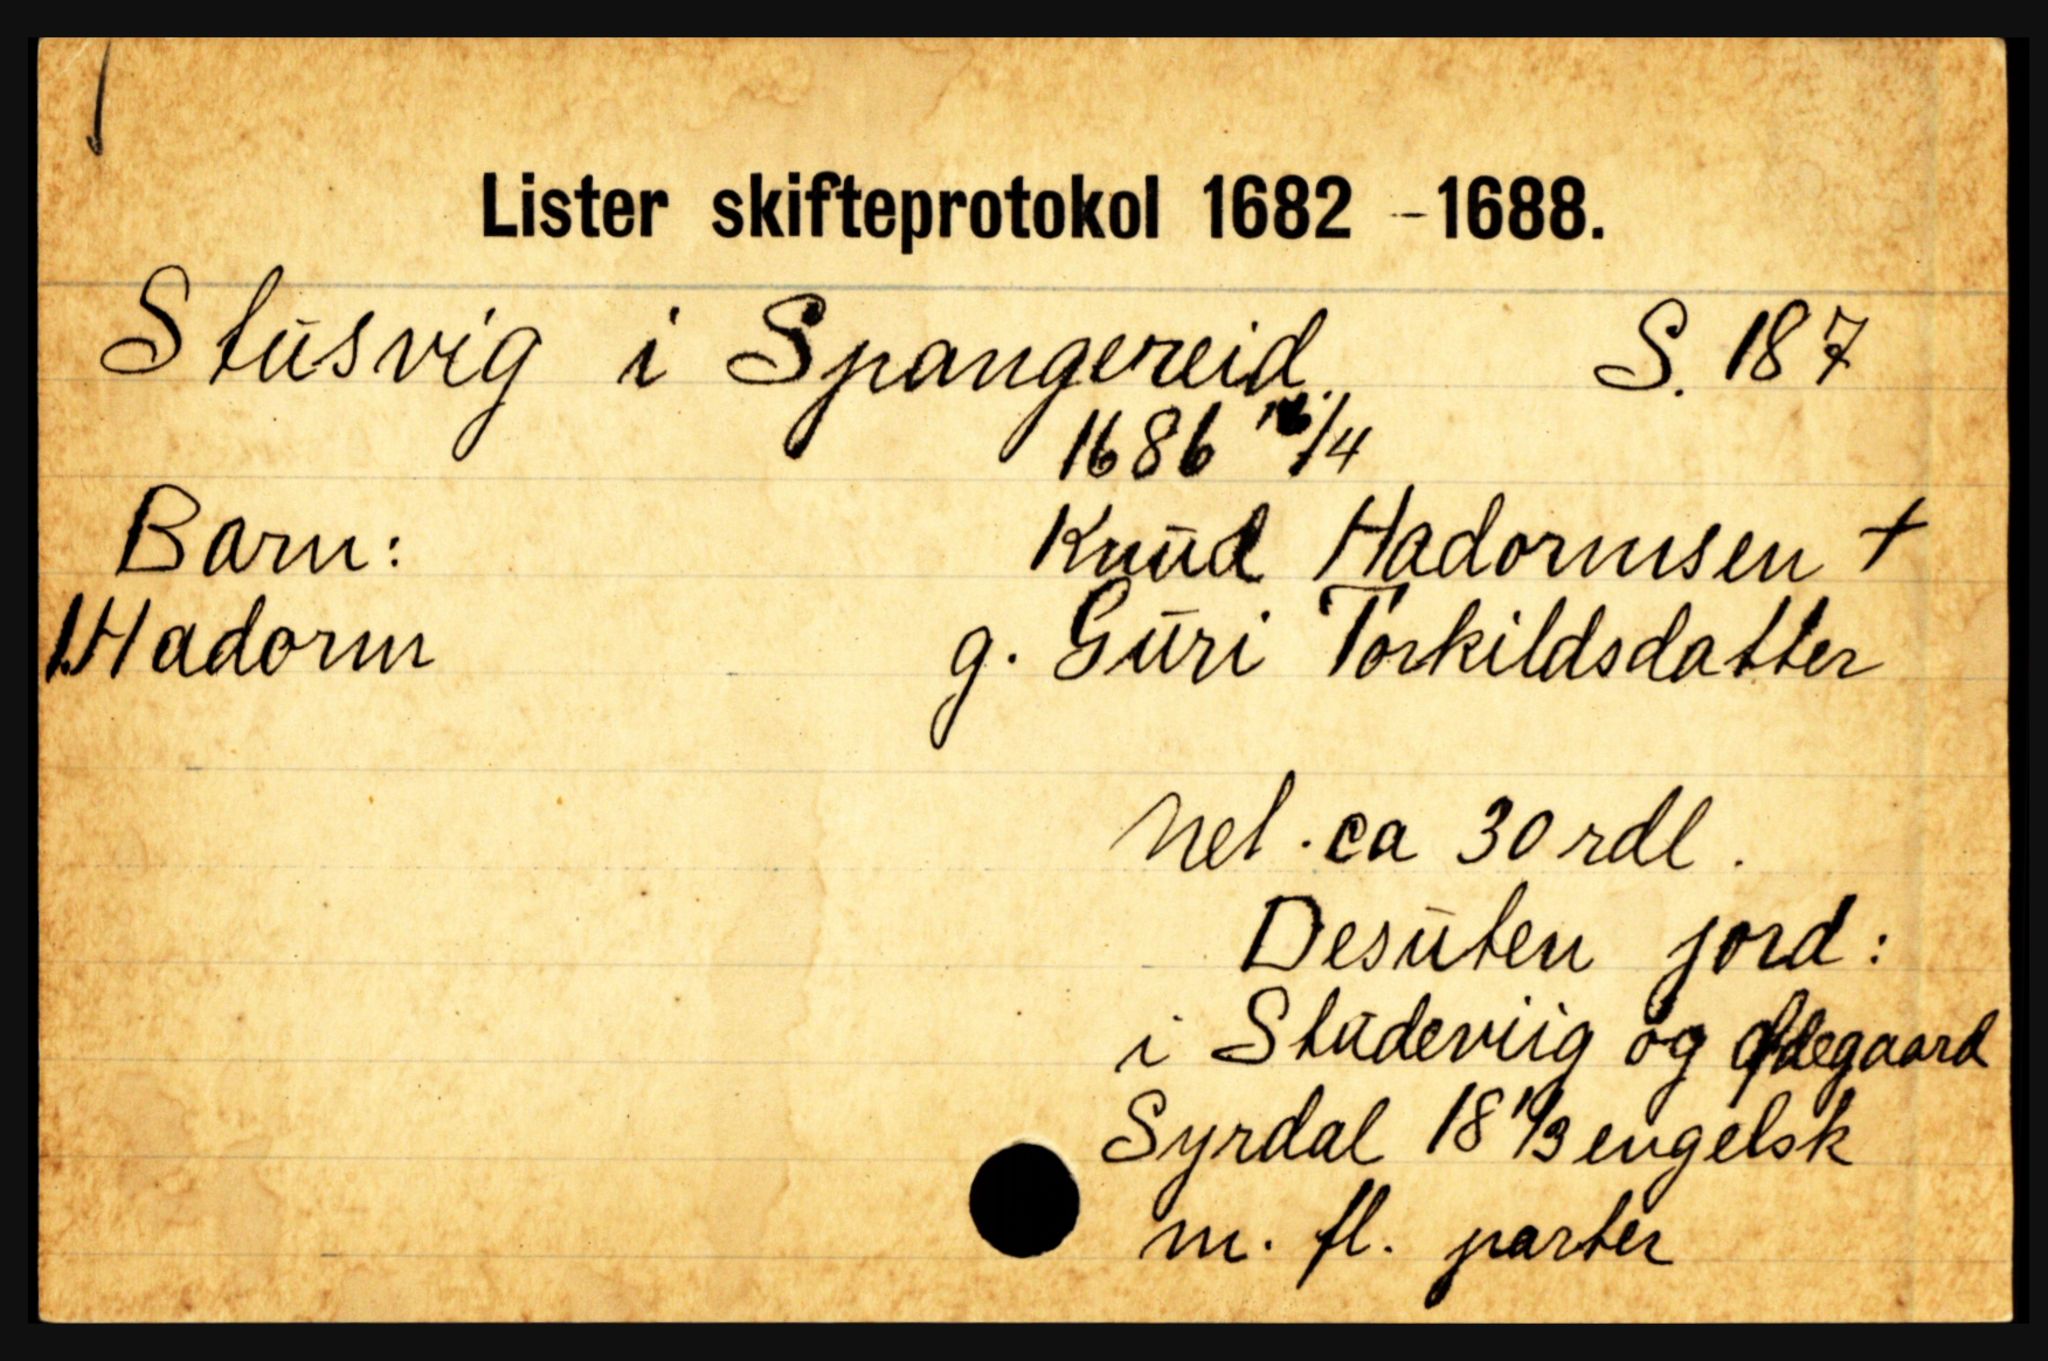 Lister skifteprotokol 1682 - 1688.
Stusvig i Spangereid. S. 187
1686 /4
Barn: Knud Hadormsen +
1. Hadorm g. Guri Torkildsdatter
Nel. ca 30 rdl.
Desuten jord:
i Studeviig og Ødegaard
Syrdal 18 1/3 engelsk
m. fl. parter